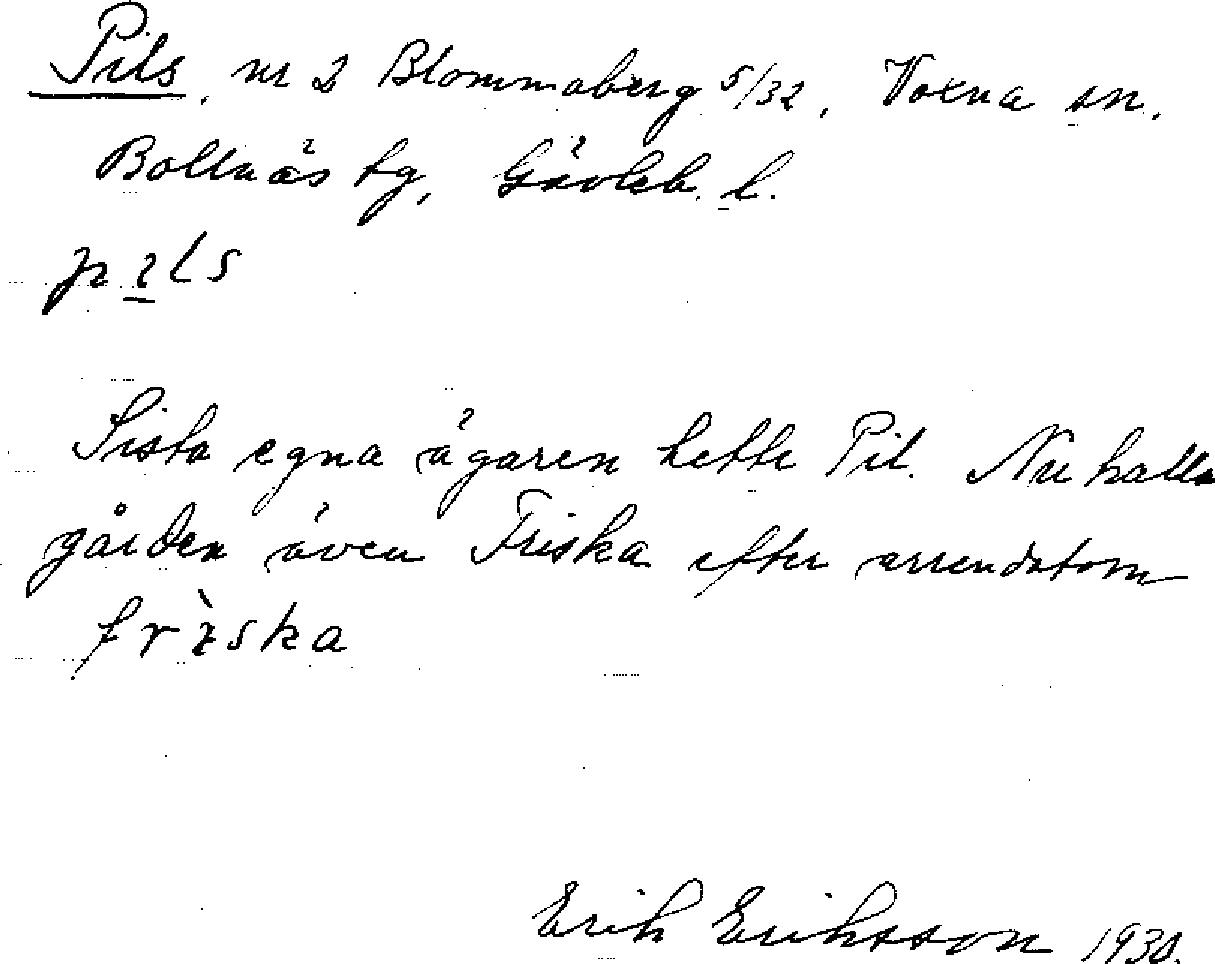 Pils, nr 2 Blommaberg 5/32, Voxna sn.
Bollnäs tg, Gävleb. l.
pils
Sista egna ägaren hette Pil. Nu kallas
gården även Friska efter arrendatorn
frìska
Erik Eriksson 1930.